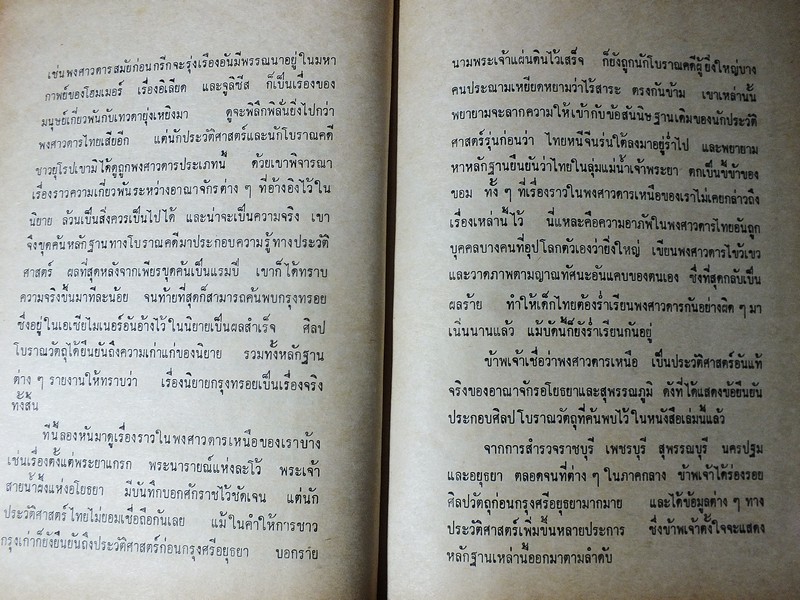 เช่นพงศาวดารสมัยก่อนกรีกจะรุ่งเรืองอันมีพรรณนาอยู่ในมหา
กาพย์ของโฮมเมอร์ เรื่องอิเลียด และจูลิซีส ก็เป็นเรื่องของ
มนุษย์เกี่ยวพันกับเทวดายุ่งเหยิงมา ดูจะพิลึกพิลั่นยิ่งไปกว่า
พงศาวดารไทยเสียอีก แต่นักประวัติศาสตร์และนักโบราณคดี
ชาวยุโรปเขามิได้ดูถูกพงศาวดารประเภทนี้ ด้วยเขาพิจารณา
เรื่องราวความเกี่ยวพันระหว่างอาณาจักรต่าง ๆ ที่อ้างอิงไว้ใน
นิยาย ล้วนเป็นสิ่งควรเป็นไปได้ และน่าจะเป็นความจริง เขา
จึงขุดค้นหลักฐานทางโบราณคดีมาประกอบความรู้ทางประวัติ
ศาสตร์ ผลที่สุดหลังจากเพียรขุดค้นเป็นแรมปี เขาก็ได้ทราบ
ความจริงขึ้นมาทีละน้อย จนท้ายที่สุดก็สามารถค้นพบกรุงทรอย
ซึ่งอยู่ในเอเซียไมเนอร์อันอ้างไว้ในนิยายเป็นผลสำเร็จ ศิลป
โบราณวัตถุได้ยืนยันถึงความเก่าแก่ของนิยาย รวมทั้งหลักฐาน
ต่าง ๆ รายงานให้ทราบว่า เรื่องนิยายกรุงทรอยเป็นเรื่องจริง
ทั้งสิ้น
ทีนี้ลองหันมาดูเรื่องราวในพงศาวดารเหนือของเราบ้าง
เช่นเรื่องตั้งแต่พระยาแกรก พระนารายณ์แห่งละโว้ พระเจ้า
สายน้ำผึ้งแห่งอโยธยา มีบันทึกบอกศักราชไว้ชัดเจน แต่นัก
ประวัติศาสตร์ไทยไม่ยอมเชื่อถือกันเลย แม้ในคำให้การชาว
กรุงเก่าก็ยังยืนยันถึงประวัติศาสตร์ก่อนกรุงศรีอยุธยา บอกราย
นามพระเจ้าแผ่นดินไว้เสร็จ ก็ยังถูกนักโบราณคดีผู้ยิ่งใหญ่บาง
คนประณามเหยียดหยามว่าไร้สาระ ตรงกันข้าม เขาเหล่านั้น
พยายามจะลากความให้เข้ากับข้อสันนิษฐานเดิมของนักประวัติ
ศาสตร์รุ่นก่อนว่า ไทยหนีจีนร่นใต้ลงมาอยู่ร่ำไป และพยายาม
หาหลักฐานยืนยันว่าไทยในลุ่มแม่น้ำเจ้าพระยา ตกเป็นขี้ข้าของ
ขอม ทั้ง ๆ ที่เรื่องราวในพงศาวดารเหนือของเราไม่เคยกล่าวถึง
เรื่องเหล่านี้ไว้ นี่แหละคือความอาภัพในพงศาวดารไทยอันถูก
บุคคลบางคนที่อุปโลกตัวเองว่ายิ่งใหญ่ เขียนพงศาวดารไขว้เขว
และวาดภาพตามญาณทัศนะอันแคบของตนเอง ซึ่งที่สุดกลับเป็น
ผลร้าย ทำให้เด็กไทยต้องร่ำเรียนพงศาวดารกันอย่างผิด ๆ มา
เนิ่นนานแล้ว แม้บัดนี้ก็ยังร่ำเรียนกันอยู่
ข้าพเจ้าเชื่อว่าพงศาวดารเหนือ เป็นประวัติศาสตร์อันแท้
จริงของอาณาจักรอโยธยาและสุพรรณภูมิ ดังที่ได้แสดงข้อยืนยัน
ประกอบศิลปโบราณวัตถุที่ค้นพบไว้ในหนังสือเล่มนี้แล้ว
จากการสำรวจราชบุรี เพชรบุรี สุพรรณบุรี นครปฐม
และอยุธยา ตลอดจนที่ต่าง ๆ ในภาคกลาง ข้าพเจ้าได้ร่องรอย
ศิลปวัตถุก่อนกรุงศรีอยุธยามากมาย และได้ข้อมูลต่าง ๆ ทาง
ประวัติศาสตร์เพิ่มขึ้นหลายประการ ซึ่งข้าพเจ้าตั้งใจจะแสดง
หลักฐานเหล่านี้ออกมาตามลำดับ